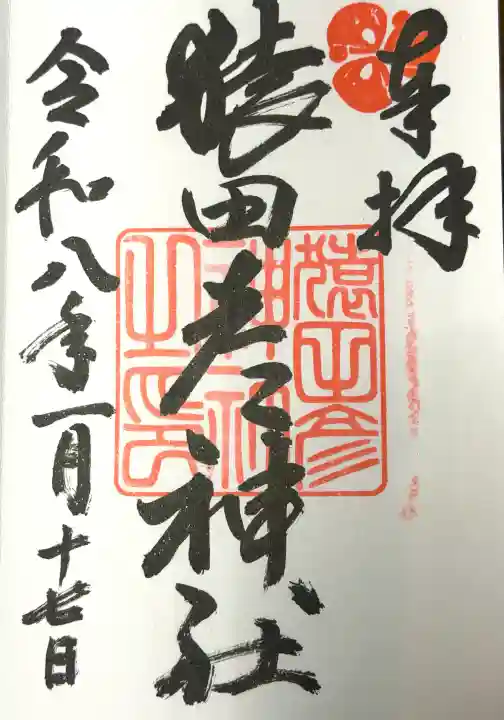 奉拝
猿田彦神社
令和八年一月十七日
猿田彦
神社
之印